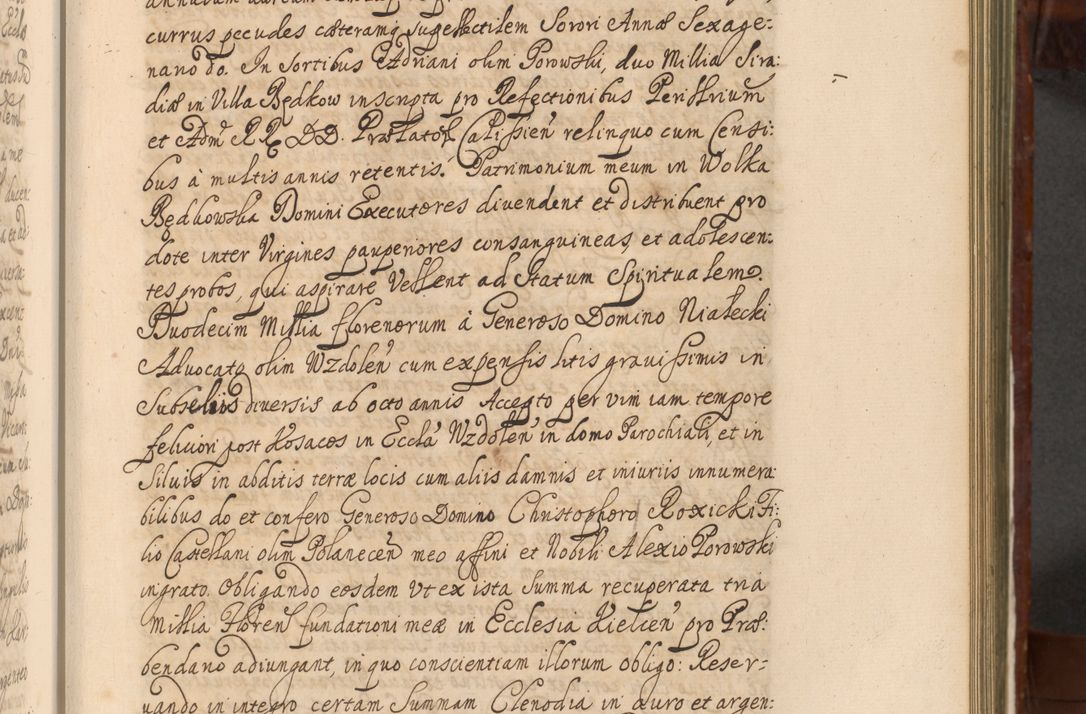 currus pecudes cæteramq̃ supellectilem Sorori Annæ Sexage:
nario do. In sortibus Adriani olim Porowski, duo Millia Sira:
diæ in Villa Będkow inscripta pro Refectionibus Peristrium
et Adm̃ RR. DD. Prælator̃ Calissien̄ relinquo cum Censi:
bus à multis annis retentis. Patrimonium meum in Wolka
Będkowska Domini Executores divendent et distribuent pro
dote inter Virgines pauperiores consanguineas, et adolescen:
tes probos, qui aspirare Vellent ad Statum Spiritualem.
Duodecim Millia florenorum à Generoso Domino Niałecki
Advocato olim Wzdolen̄ cum expensis litis gravissimis in
Subselliis diversis ab octo annis Accepto per vim iam tempore
feliciori post Kosacos in Eccła Wzdolen̄ in domo Parochiali, et in
Siluis in abditis terræ locis cum aliis damnis et iniuriis innumera:
bilibus do et confero Generoso Domino Christophoro Roxicki Fi:
lio Castellani olim Polanecen̄ meo affini et Nobili Alexio Porowski
ingrato. Obligando eosdem Ut ex ista Summa recuperata tria
Millia Floren̄ fundationi meæ in Ecclesia Kielcen̄ pro Præ:
bendario adiungant, in quo conscientiam illorum obligo: Reser:
vando in integro certam Summam Clenodia in auro et argen: